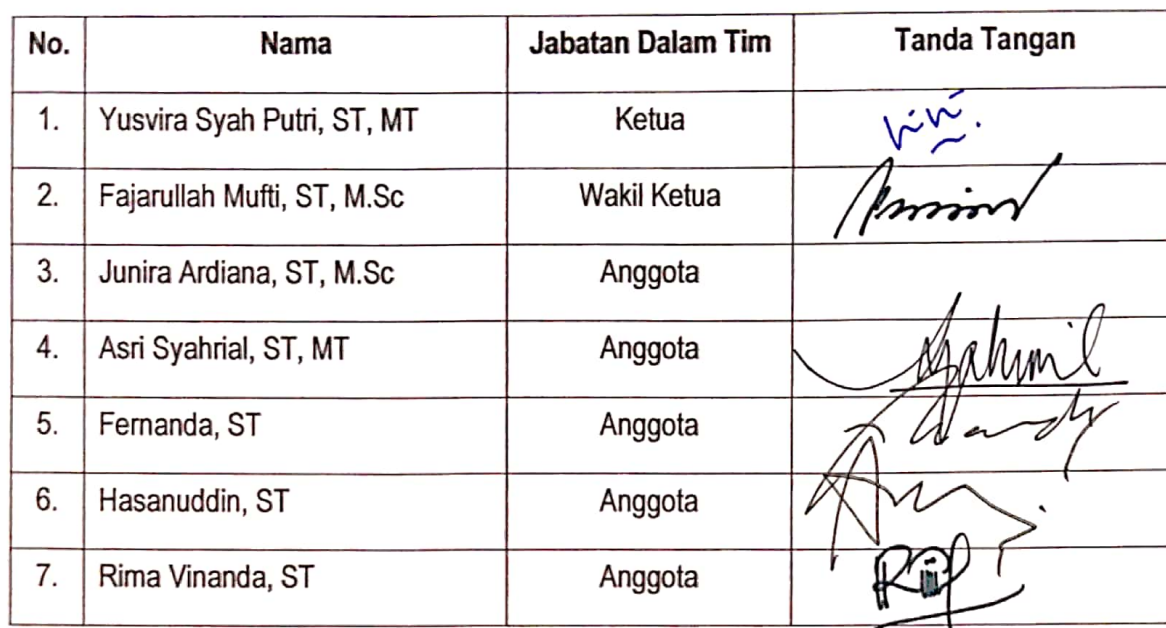 No. Nama Jabatan Dalam Tim Tanda Tangan
1. Yusvira Syah Putri, ST, MT Ketua
2. Fajarullah Mufti, ST, M.Sc Wakil Ketua
3. Junira Ardiana, ST, M.Sc Anggota
4. Asri Syahrial, ST, MT Anggota
5. Fernanda, ST Anggota
6. Hasanuddin, ST Anggota
7. Rima Vinanda, ST Anggota